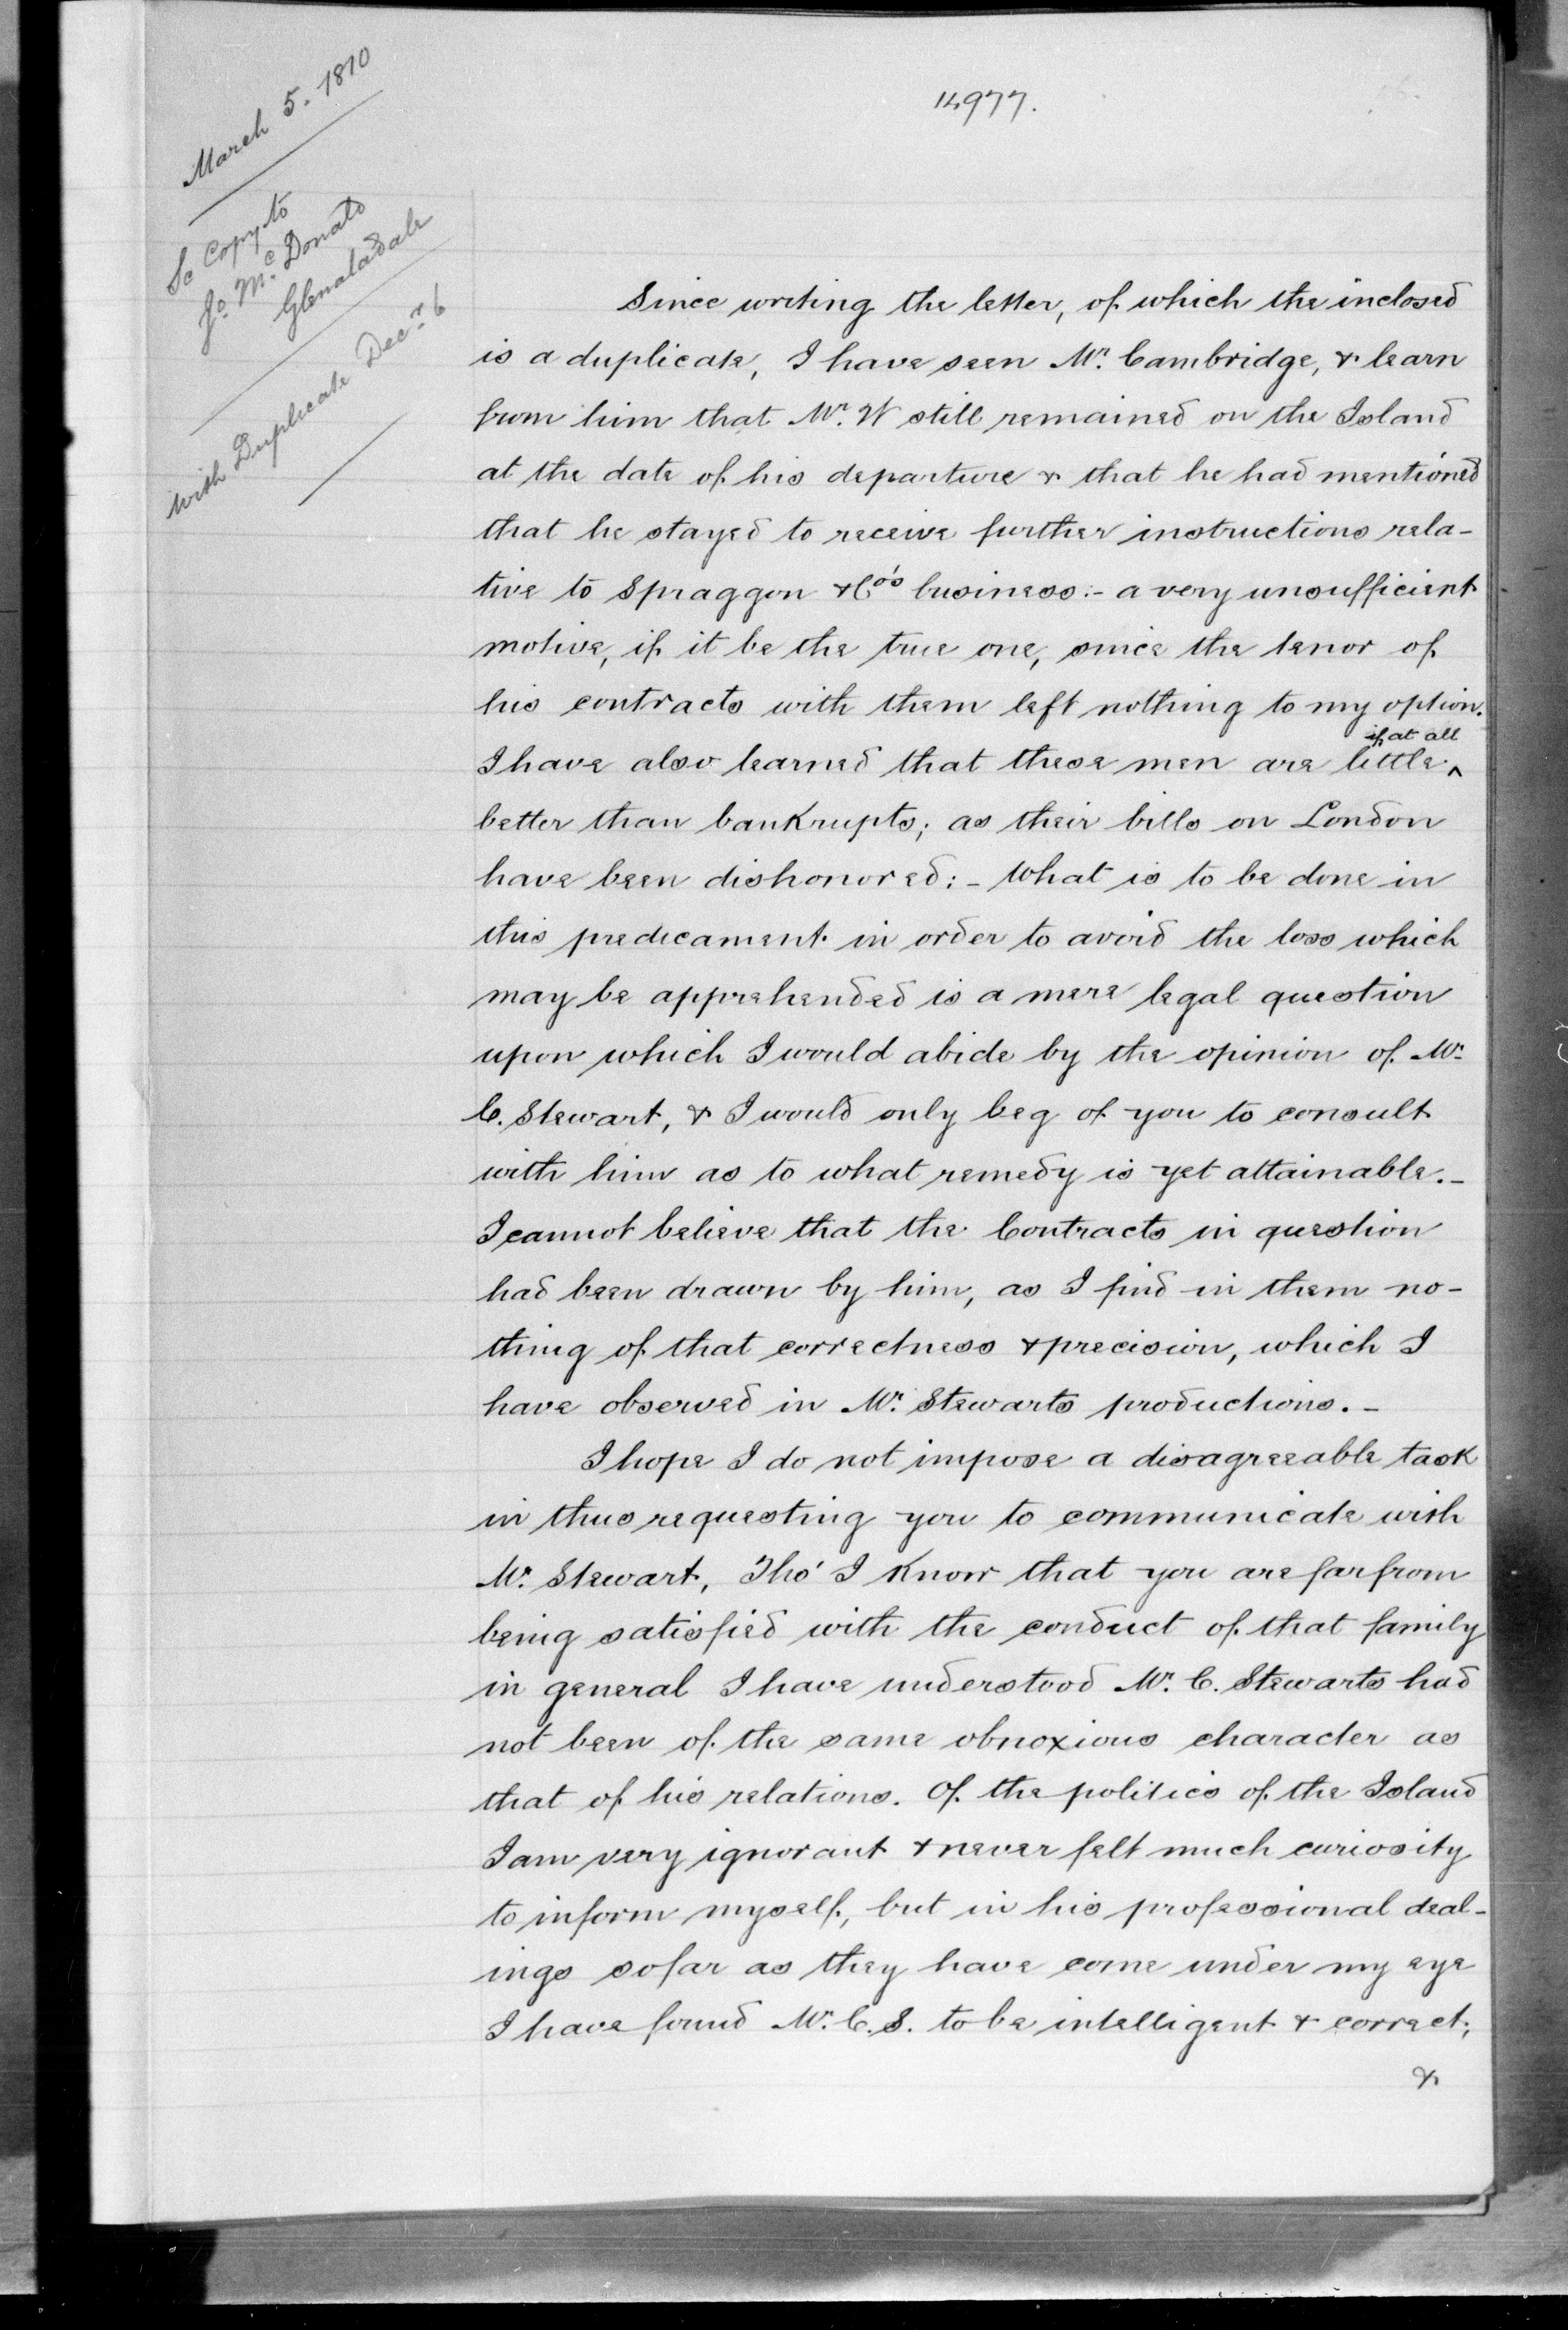 March 5. 1810
Sc Copy to
Jo. McDonald
Glenaladale
with Duplicate Decr. 6
14977.
Since writing the letter, of which the inclosed
is a duplicate, I have seen Mr. Cambridge, & learn
from him that Mr. W still remained on the Island
at the date of his departure & that he had mentioned
that he stayed to receive further instructions rela-
tive to Spraggon & Co's business:- a very unsufficient
motive, if it be the true one, since the tenor of
his contracts with them left nothing to my option.
if at all
I have also learned that these men are little ^
better than bankrupts; as their bills on London
have been dishonored:- What is to be done in
this predicament in order to avoid the loss which
may be apprehended is a mere legal question
upon which I would abide by the opinion of Mr.
C. Stewart, & I would only beg of you to consult
with him as to what remedy is yet attainable.-
I cannot believe that the Contracts in question
had been drawn by him, as I find in them no-
thing of that correctness & precision, which I
have observed in Mr. Stewarts productions.-
I hope I do not impose a disagreeable task
in thus requesting you to communicate with
Mr. Stewart, Tho' I know that you are far from
being satisfied with the conduct of that family
in general I have understood Mr. C. Stewarts had
not been of the same obnoxious character as
that of his relations. Of the politics of the Island
I am very ignorant & never felt much curiosity
to inform myself, but in his professional deal-
ings so far as they have come under my eye
I have found Mr. C. S. to be intelligent & correct;
&